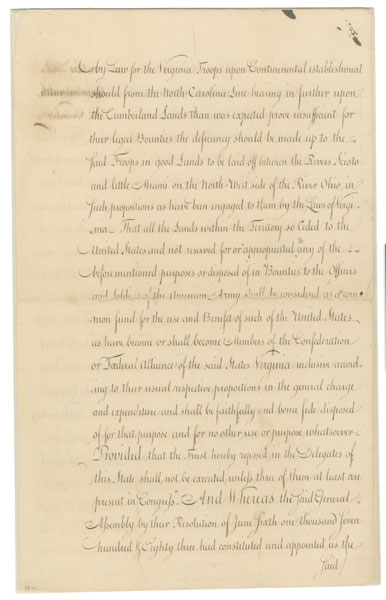 by Law for the Virginia Troops upon Continenental establishment
should from the North Carolina Line bearing in further upon
the Cumberland Lands than was expected prove insufficient for
their legal Bounties the deficiency should be made up to the
said Troops in good Lands to be laid off between the Rivers Scioto
and little Miami on the North West side of the River Ohio in
such proportions as have been engaged to them by the Laws of Virgi-
nia - That all the Lands within the Territory so ceded to the
United States and not reserved for or appropriated to any of the
before mentioned purposes or disposed of in Bounties to the Officers
and Soldiers of the American Army shall be considered as a com-
mon fund for the use and Benefit of such of the United States
as have become or shall become Members of the Confederation
or Fœderal Alliance of the said States Virginia inclusive accord-
ing to their usual respective proportions in the general charge
and expenditure and shall be faithfully and bona fide disposed
of for that purpose and for no other use or purpose whatsoever
Provided that the Trust hereby reposed in the Delegates of
this State shall not be executed unless three of them at least are
present in Congress". And Whereas the said General
Assembly by their Resolution of June Sixth one thousand seven
hundred & Eighty three had constituted and appointed is the
said